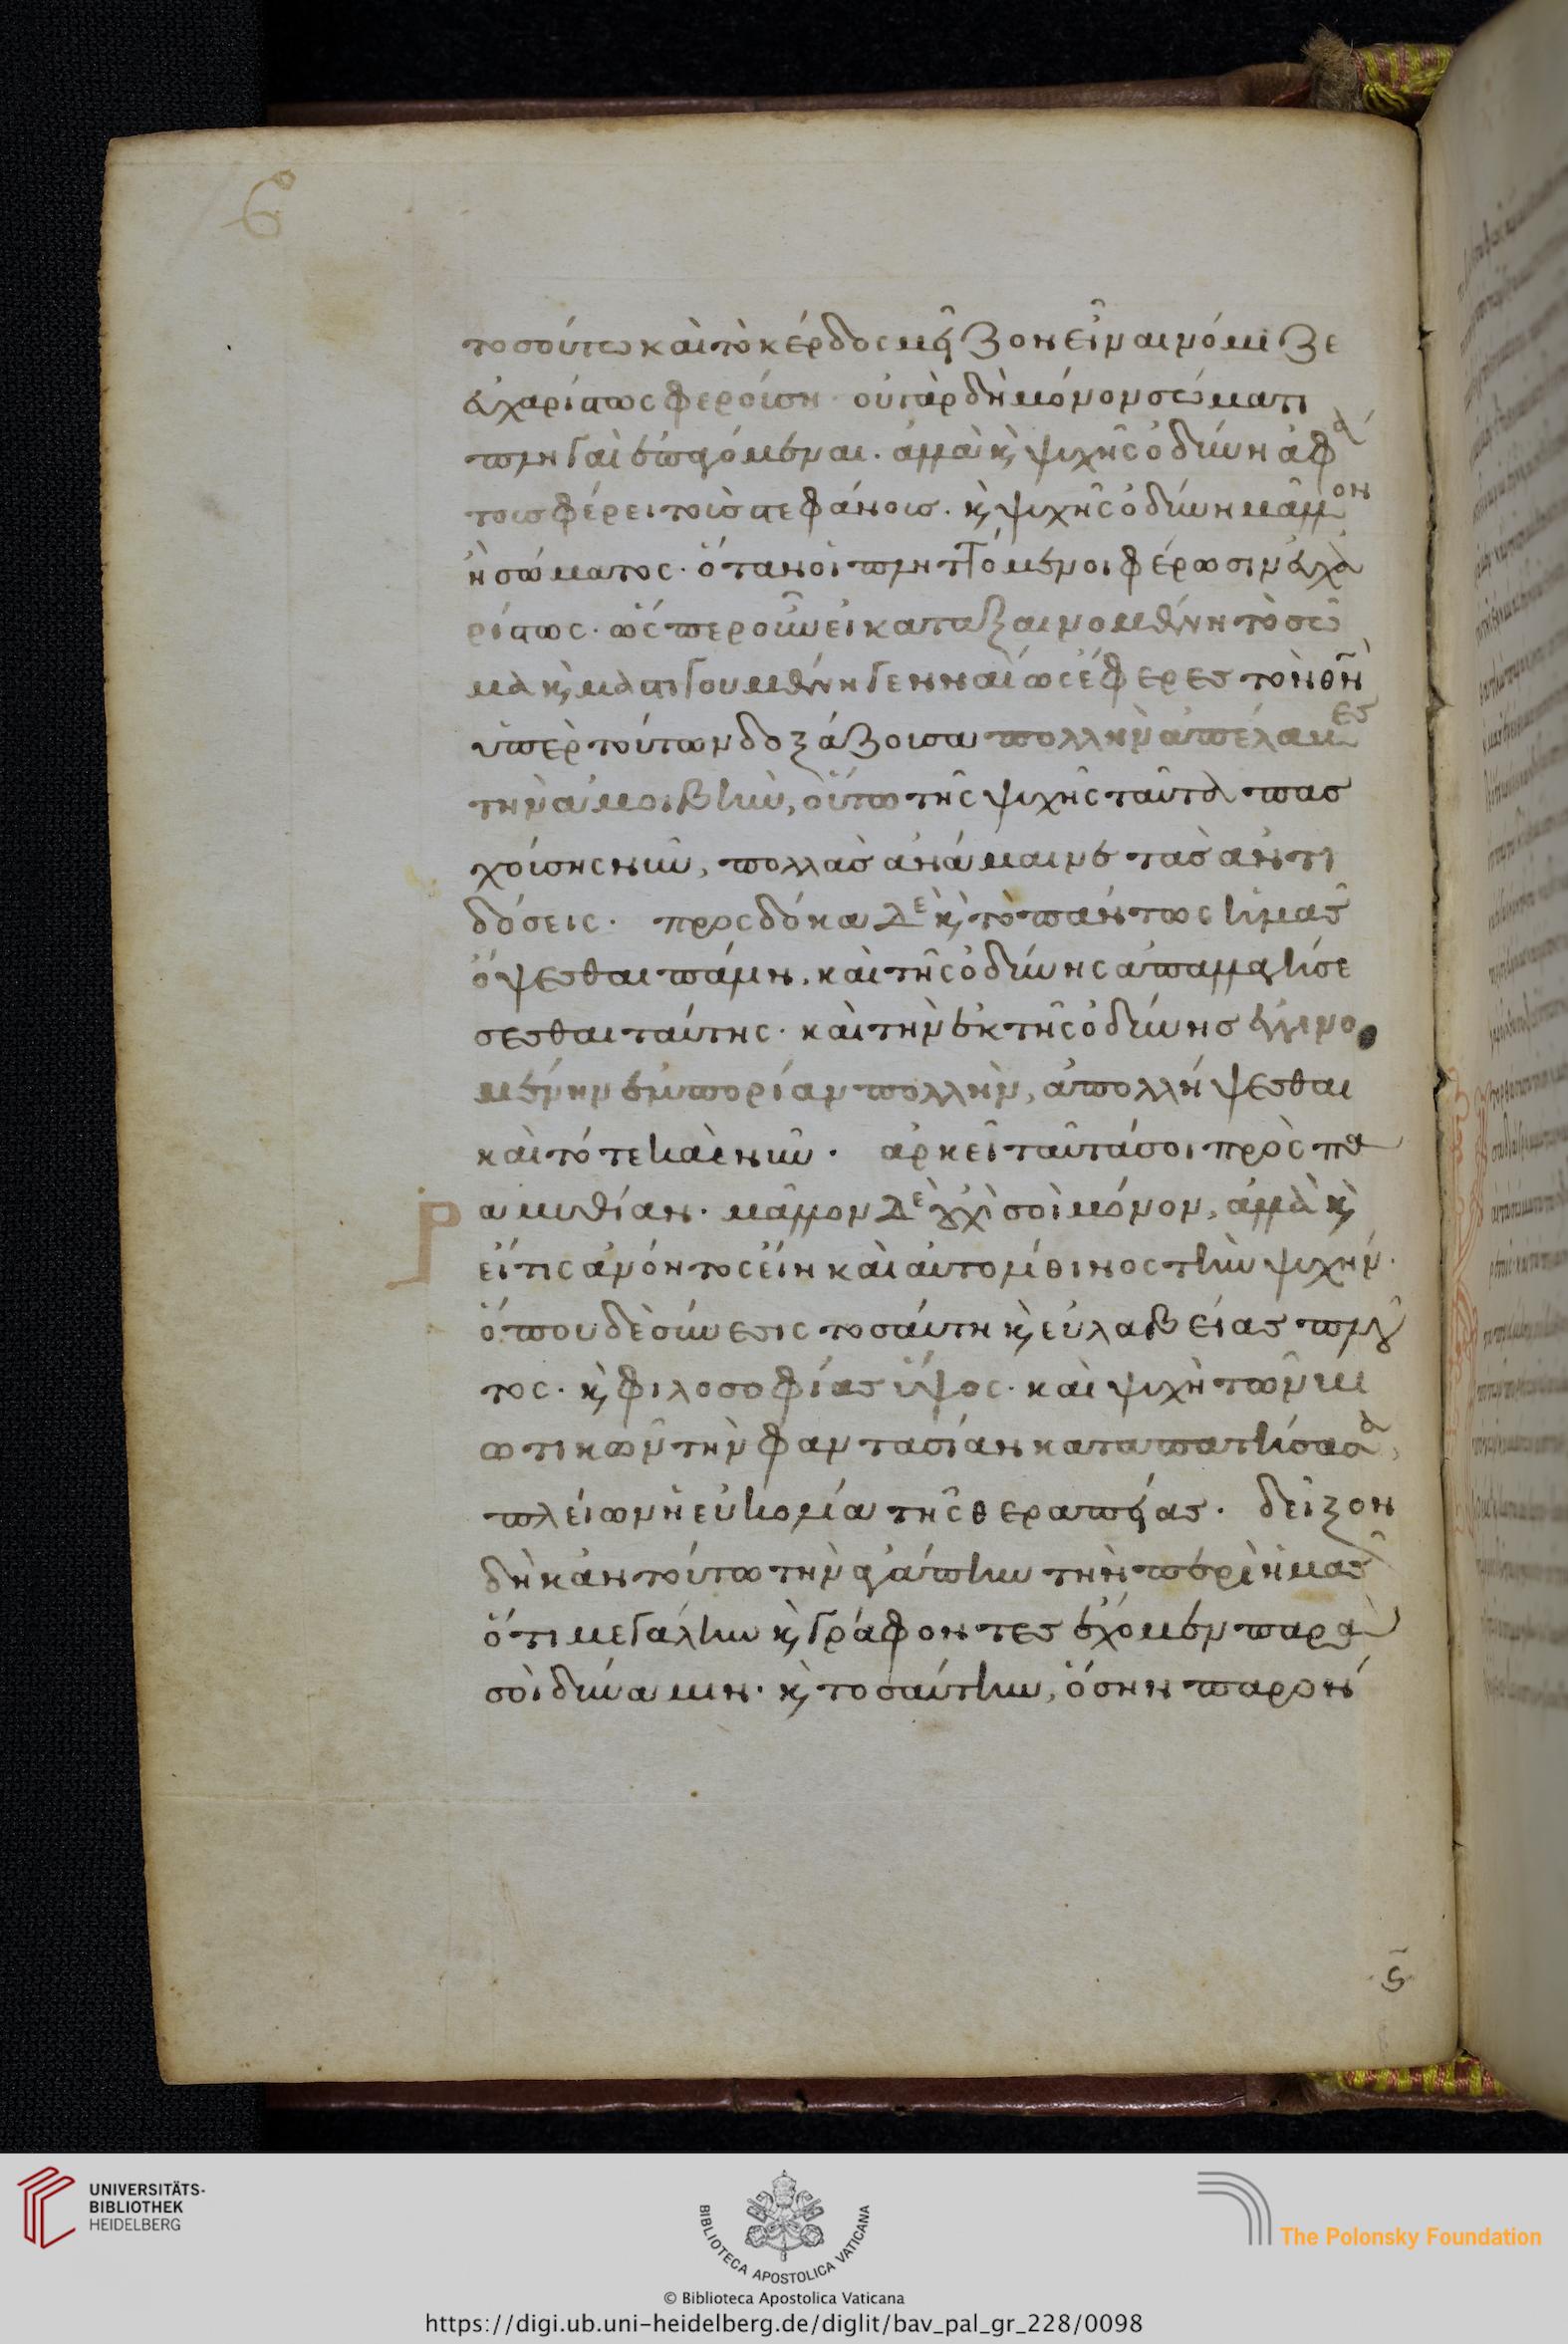 τοσούτω καὶ τὸ κέρδος μεῖζον εἶναι νόμιζε
εὐχαρίστως φερούση· οὐ γὰρ δὴ μόνον σώματι
πληγαὶ ἐπαγόμεναι. ἀλλὰ κ̀ ψυχῆς ὀδύνη ἀφά
τους φέρει τοὺς στεφάνους. κ̀ ψυχῆς ὀδύνη μᾶλλον
ἢ σώματος· ὅταν οἱ πληττόμενοι φέρωσιν εὐχα
ρίστως. ὥσπερ οὖν εἰ καταξαινομένη τὸ σῶ
μα κ̀ μαστιγουμένη γενναίως ἔφερες τὸν θν̄
ὑπὲρ τούτων δοξάζουσα πολλὴν ἀπέλαμες
τὴν ἀμοιβὴν, οὕτω τῆς ψυχῆς ταῦτα πασ
χούσης νῦν, πολλὰς ἀνάμαινε τὰς ἀντι
δόσεις. προσδόκα δὲ κ̀ τὸ πάντως ἡμᾶς
ὄψεσθαι πάλιν. καὶ τῆς ὀδύνης ἀπαλλαγήσε
σεσθαι ταύτης. καὶ τὴν ἐκ τῆς ὀδύνης ἐγγινο
μένην ἐμπορίαν πολλὴν, ἀπολλήψεσθαι
καὶ τότε καὶ νῦν. ἀρκεῖ ταῦτά σοι πρὸς πα
ραμυθίαν. μᾶλλον δὲ οὐχὶ σοὶ μόνον, ἀλλὰ κ̀
εἴ τις ἀνόητος εἴη καὶ αὐτολίθινος τὴν ψυχήν.
ὅπου δὲ σύνεσις τοσαύτη κ̀ εὐλαβείας πλοῦ
τος. κ̀ φιλοσοφίας ὕψος. καὶ ψυχὴ τῶν βι
ωτικῶν τὴν φαντασίαν καταπατήσασα,
πλείων ἡ εὐκολία τῆς θεραπείας. δεῖξον
δὴ κἀν τούτω τὴν ἀγάπην τὴν περὶ ἡμᾶς
ὅτι μεγάλην κ̀ γράφοντες ἔχομεν παρὰ
σοὶ δύναμιν. κ̀ τοσαύτην, ὅσην παρόν
ϛ̄
UNIVERSITÄTS-
BIBLIOTHEK
HEIDELBERG
BIBLIOTECA APOSTOLICA VATICANA
The Polonsky Foundation
© Biblioteca Apostolica Vaticana
https://digi.ub.uni-heidelberg.de/diglit/bav_pal_gr_228/0098